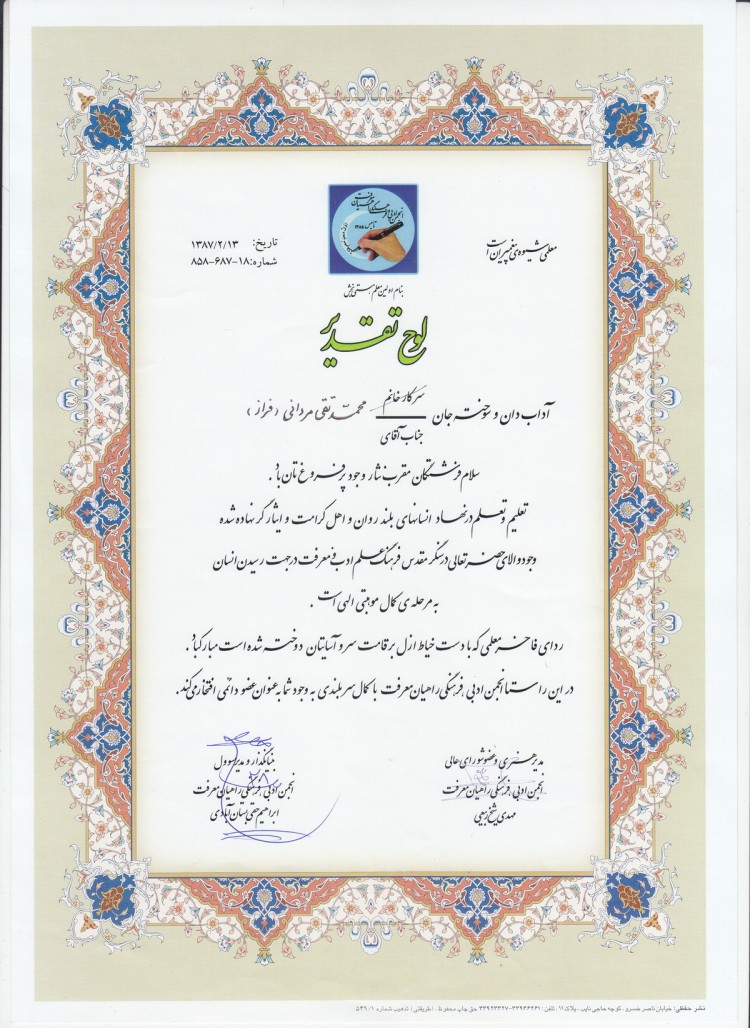 معلمی شیوه‌ی پیمبران است
انجمن ادبی فرهنگی راهیان معرفت
تأسیس ۱۳۸۵
تاریخ: ۱۳۸۷/۲/۱۳
شماره: ۱۸-۶۸۷-۸۵۸
بنام اولین معلم هستی بخش
لوح تقدیر
آداب دان و سوخته جان سرکار خانم محمد تقی مردانی (فراز)
جناب آقای
سلام فرشتگان مقرب نثار وجود پر فروغ تان باد.
تعلیم و تعلم در نهاد انسانهای بلند روان و اهل کرامت و ایثارگر نهاده شده
وجود والای حضرتعالی در سنگر مقدس فرهنگ علم ادب و معرفت در جهت رسیدن انسان
به مرحله‌ی کمال موهبتی الهی است.
ردای فاخر معلمی که با دست خیاط ازل بر قامت سرو آسایتان دوخته شده است مبارکباد.
در این راستا انجمن ادبی فرهنگی راهیان معرفت با کمال سربلندی به وجود شما به عنوان عضو دائمی افتخار می‌کند.
مدیر هنری و عضو شورای عالی
انجمن ادبی فرهنگی راهیان معرفت
مهدی شیخ ربیعی
بنیانگذار و مدیر مسوول
انجمن ادبی فرهنگی راهیان معرفت
ابراهیم حقی بستان آبادی
نشر حفظی: خیابان ناصر خسرو، کوچه حاجی نایب، پلاک ۱۱، تلفن: ۳۳۹۳۶۴۶۱-۳۳۹۲۳۳۲۷ حق چاپ محفوظ . (طریقتی) تذهیب شماره ۵۴۹/۱